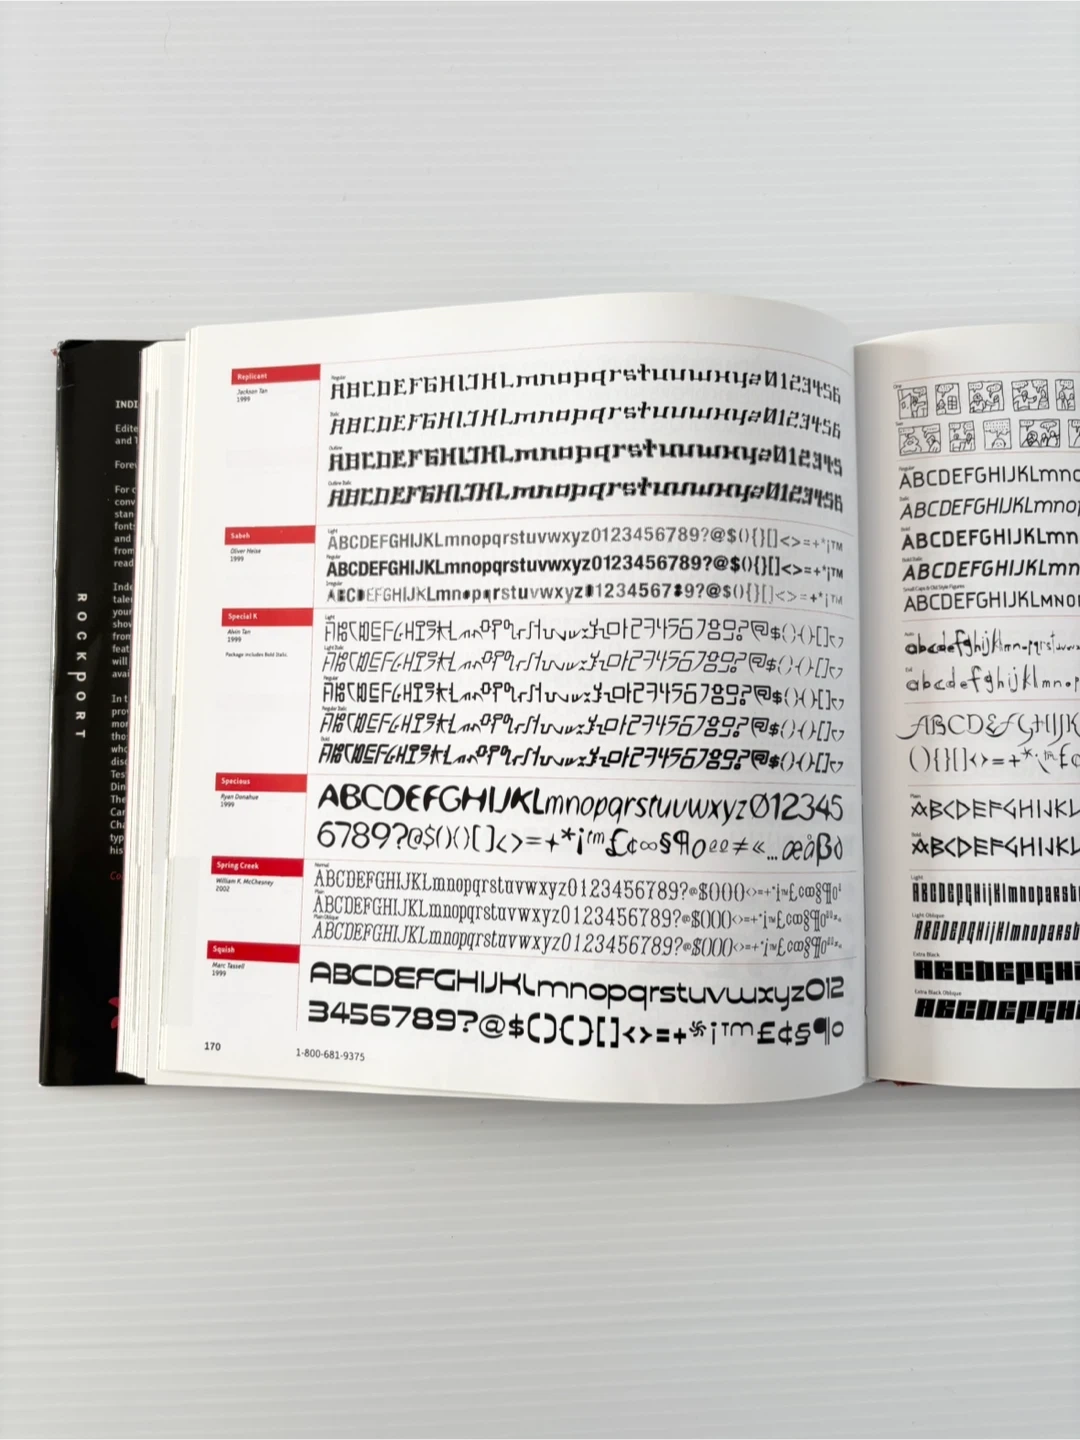 INDI
Edite
and
Forev
For c
conv
stan
font
and
from
read
Inde
tale
your
sho
from
feat
will
avai
In t
pro
mor
tho
who
disc
Tes
Din
The
Car
Cha
typ
his
Co
ROCKPORT
Replicant
Jackson Tan
1999
Regular
ABCDEFGHIJKLmnopqrstuvwxyz0123456
Italic
ABCDEFGHIJKLmnopqrstuvwxyz0123456
Outline
ABCDEFGHIJKLmnopqrstuvwxyz0123456
Outline Italic
ABCDEFGHIJKLmnopqrstuvwxyz0123456
Sabeh
Oliver Heise
1999
Light
ABCDEFGHIJKLmnopqrstuvwxyz0123456789?@$(){}[]<>=+*¡™
Regular
ABCDEFGHIJKLmnopqrstuvwxyz0123456789?@$(){}[]<>=+*¡™
Irregular
ABCDEFGHIJKLmnopqrstuvwxyz0123456789?@$(){}[]<>=+*¡™
Special K
Alvin Tan
1999
Package includes Bold Italic.
Light
ABCDEFGHIJKLmnopqrstuvwxyz0123456789?@$(){}[]<>
Light Italic
ABCDEFGHIJKLmnopqrstuvwxyz0123456789?@$(){}[]<>
Regular
ABCDEFGHIJKLmnopqrstuvwxyz0123456789?@$(){}[]<>
Regular Italic
ABCDEFGHIJKLmnopqrstuvwxyz0123456789?@$(){}[]<>
Bold
ABCDEFGHIJKLmnopqrstuvwxyz0123456789?@$(){}[]<>
Specious
Ryan Donahue
1999
ABCDEFGHIJKLmnopqrstuvwxyz012345
6789?@$(){}[]<>=+*¡™£¢∞§¶oªº≠«…œåβ∂
Spring Creek
William K. McChesney
2002
Normal
ABCDEFGHIJKLmnopqrstuvwxyz0123456789?@$(){}[]<>=+*¡™£¢∞§¶o
Plain
ABCDEFGHIJKLmnopqrstuvwxyz0123456789?@$(){}[]<>=+*¡™£¢∞§¶o
Plain Oblique
ABCDEFGHIJKLmnopqrstuvwxyz0123456789?@$(){}[]<>=+*¡™£¢∞§¶o
Squish
Marc Tassell
1999
ABCDEFGHIJKLmnopqrstuvwxyz012
3456789?@$(){}[]<>=+*¡™£¢§¶o
170
1-800-681-9375
One
Two
Regular
ABCDEFGHIJKLmno
Italic
ABCDEFGHIJKLmno
Bold
ABCDEFGHIJKLmn
Bold Italic
ABCDEFGHIJKLmn
Small Caps & Old Style Figures
ABCDEFGHIJKLMNO
abcdefghijklmnopqrst
abcdefghijklmnop
ABCDEFGHIJK
(){}[]<>=+*¡™£¢
Plain
ABCDEFGHIJKL
Bold
ABCDEFGHIJKL
Light
ABCDEFGHijklmnopqrst
Light Oblique
ABCDEFGHijklmnopqrst
Extra Black
ABCDEFGHi
Extra Black Oblique
ABCDEFGHi